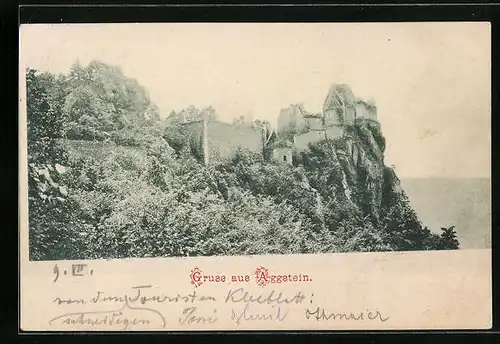 Gruse aus Aggstein.
9. VII.
von dem Touristen Kleeblatt:
Toni Othmaier